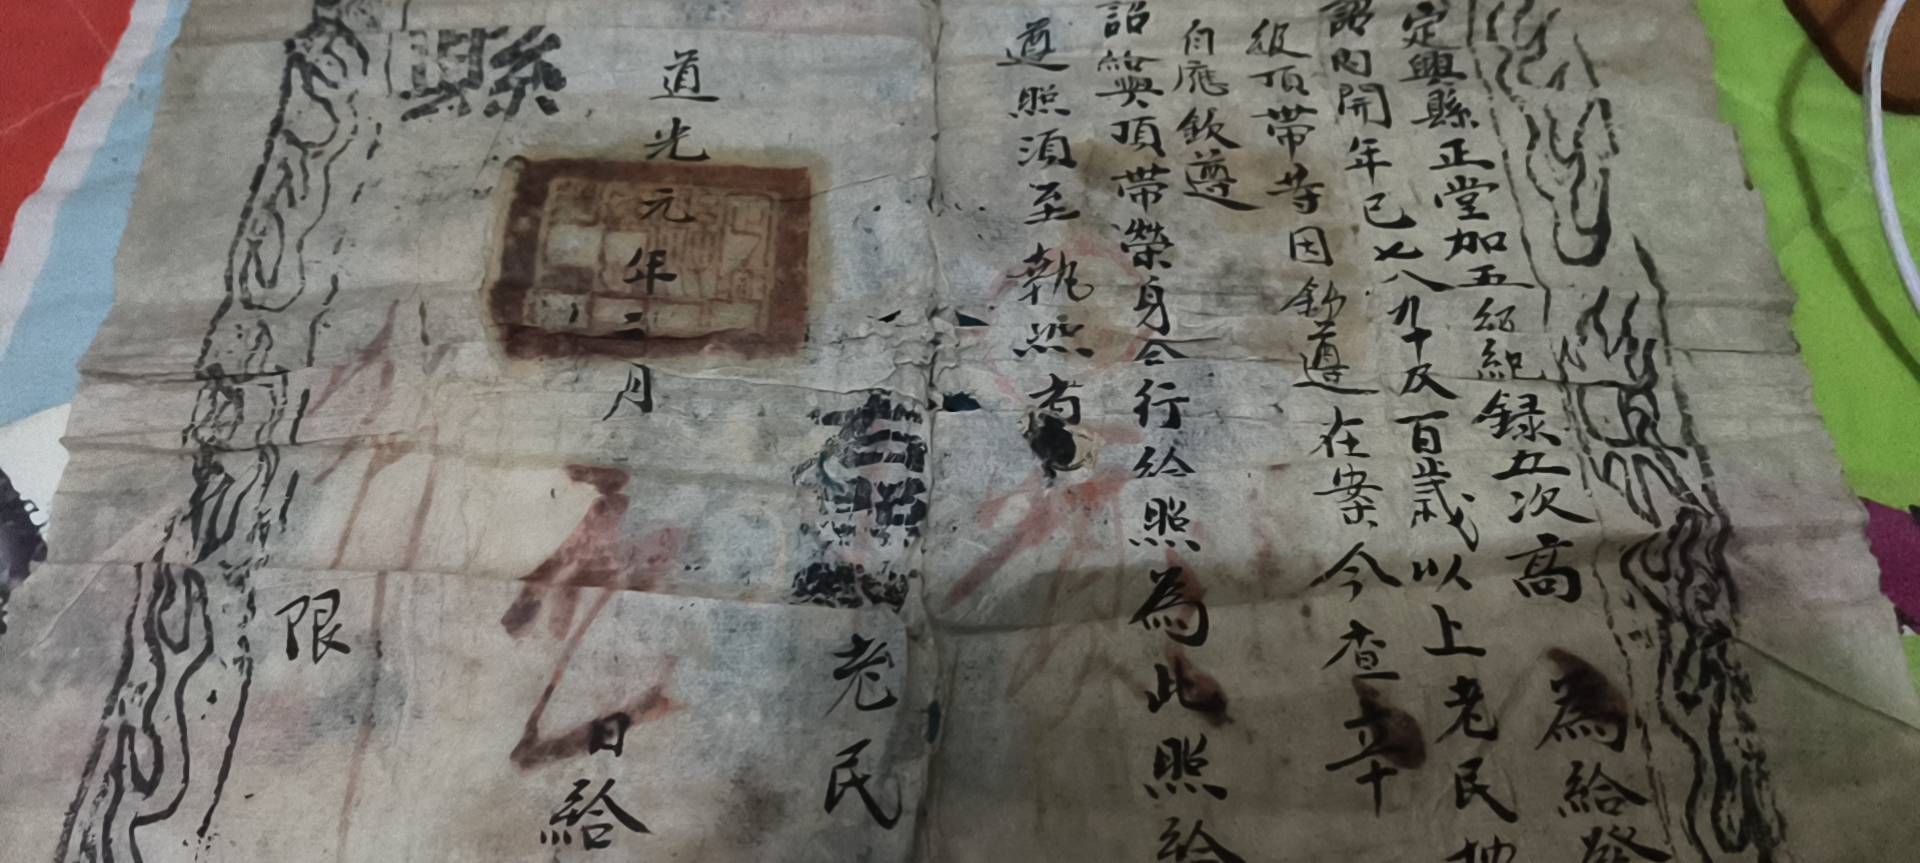 定興縣正堂加五級紀録五次高 為給發
詔內開年已七八九十及百歲以上老民
級頂帶等因欽遵在案今查辛
自應欽遵
詔給與頂帶榮身合行給照為此照給
遵照須至執照者
右照 老民
道光元年二月 日給
縣 限